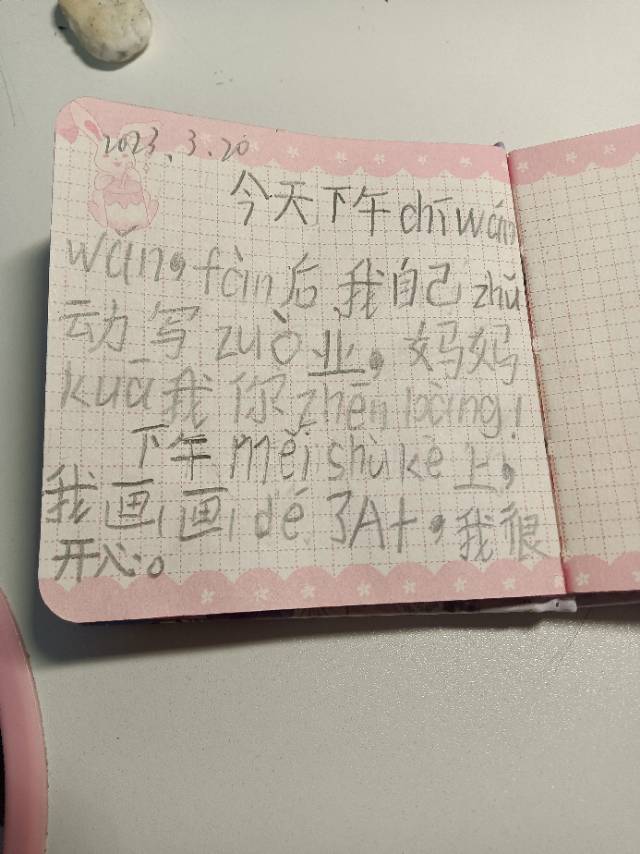 2023.3.20
今天下午chīwán
wǎn,fàn后我自己zhǔ
动写zuò业,妈妈
kuā我你zhēn bàng!
下午měi shù kè上,
我画画dé了A+,我很
开心。